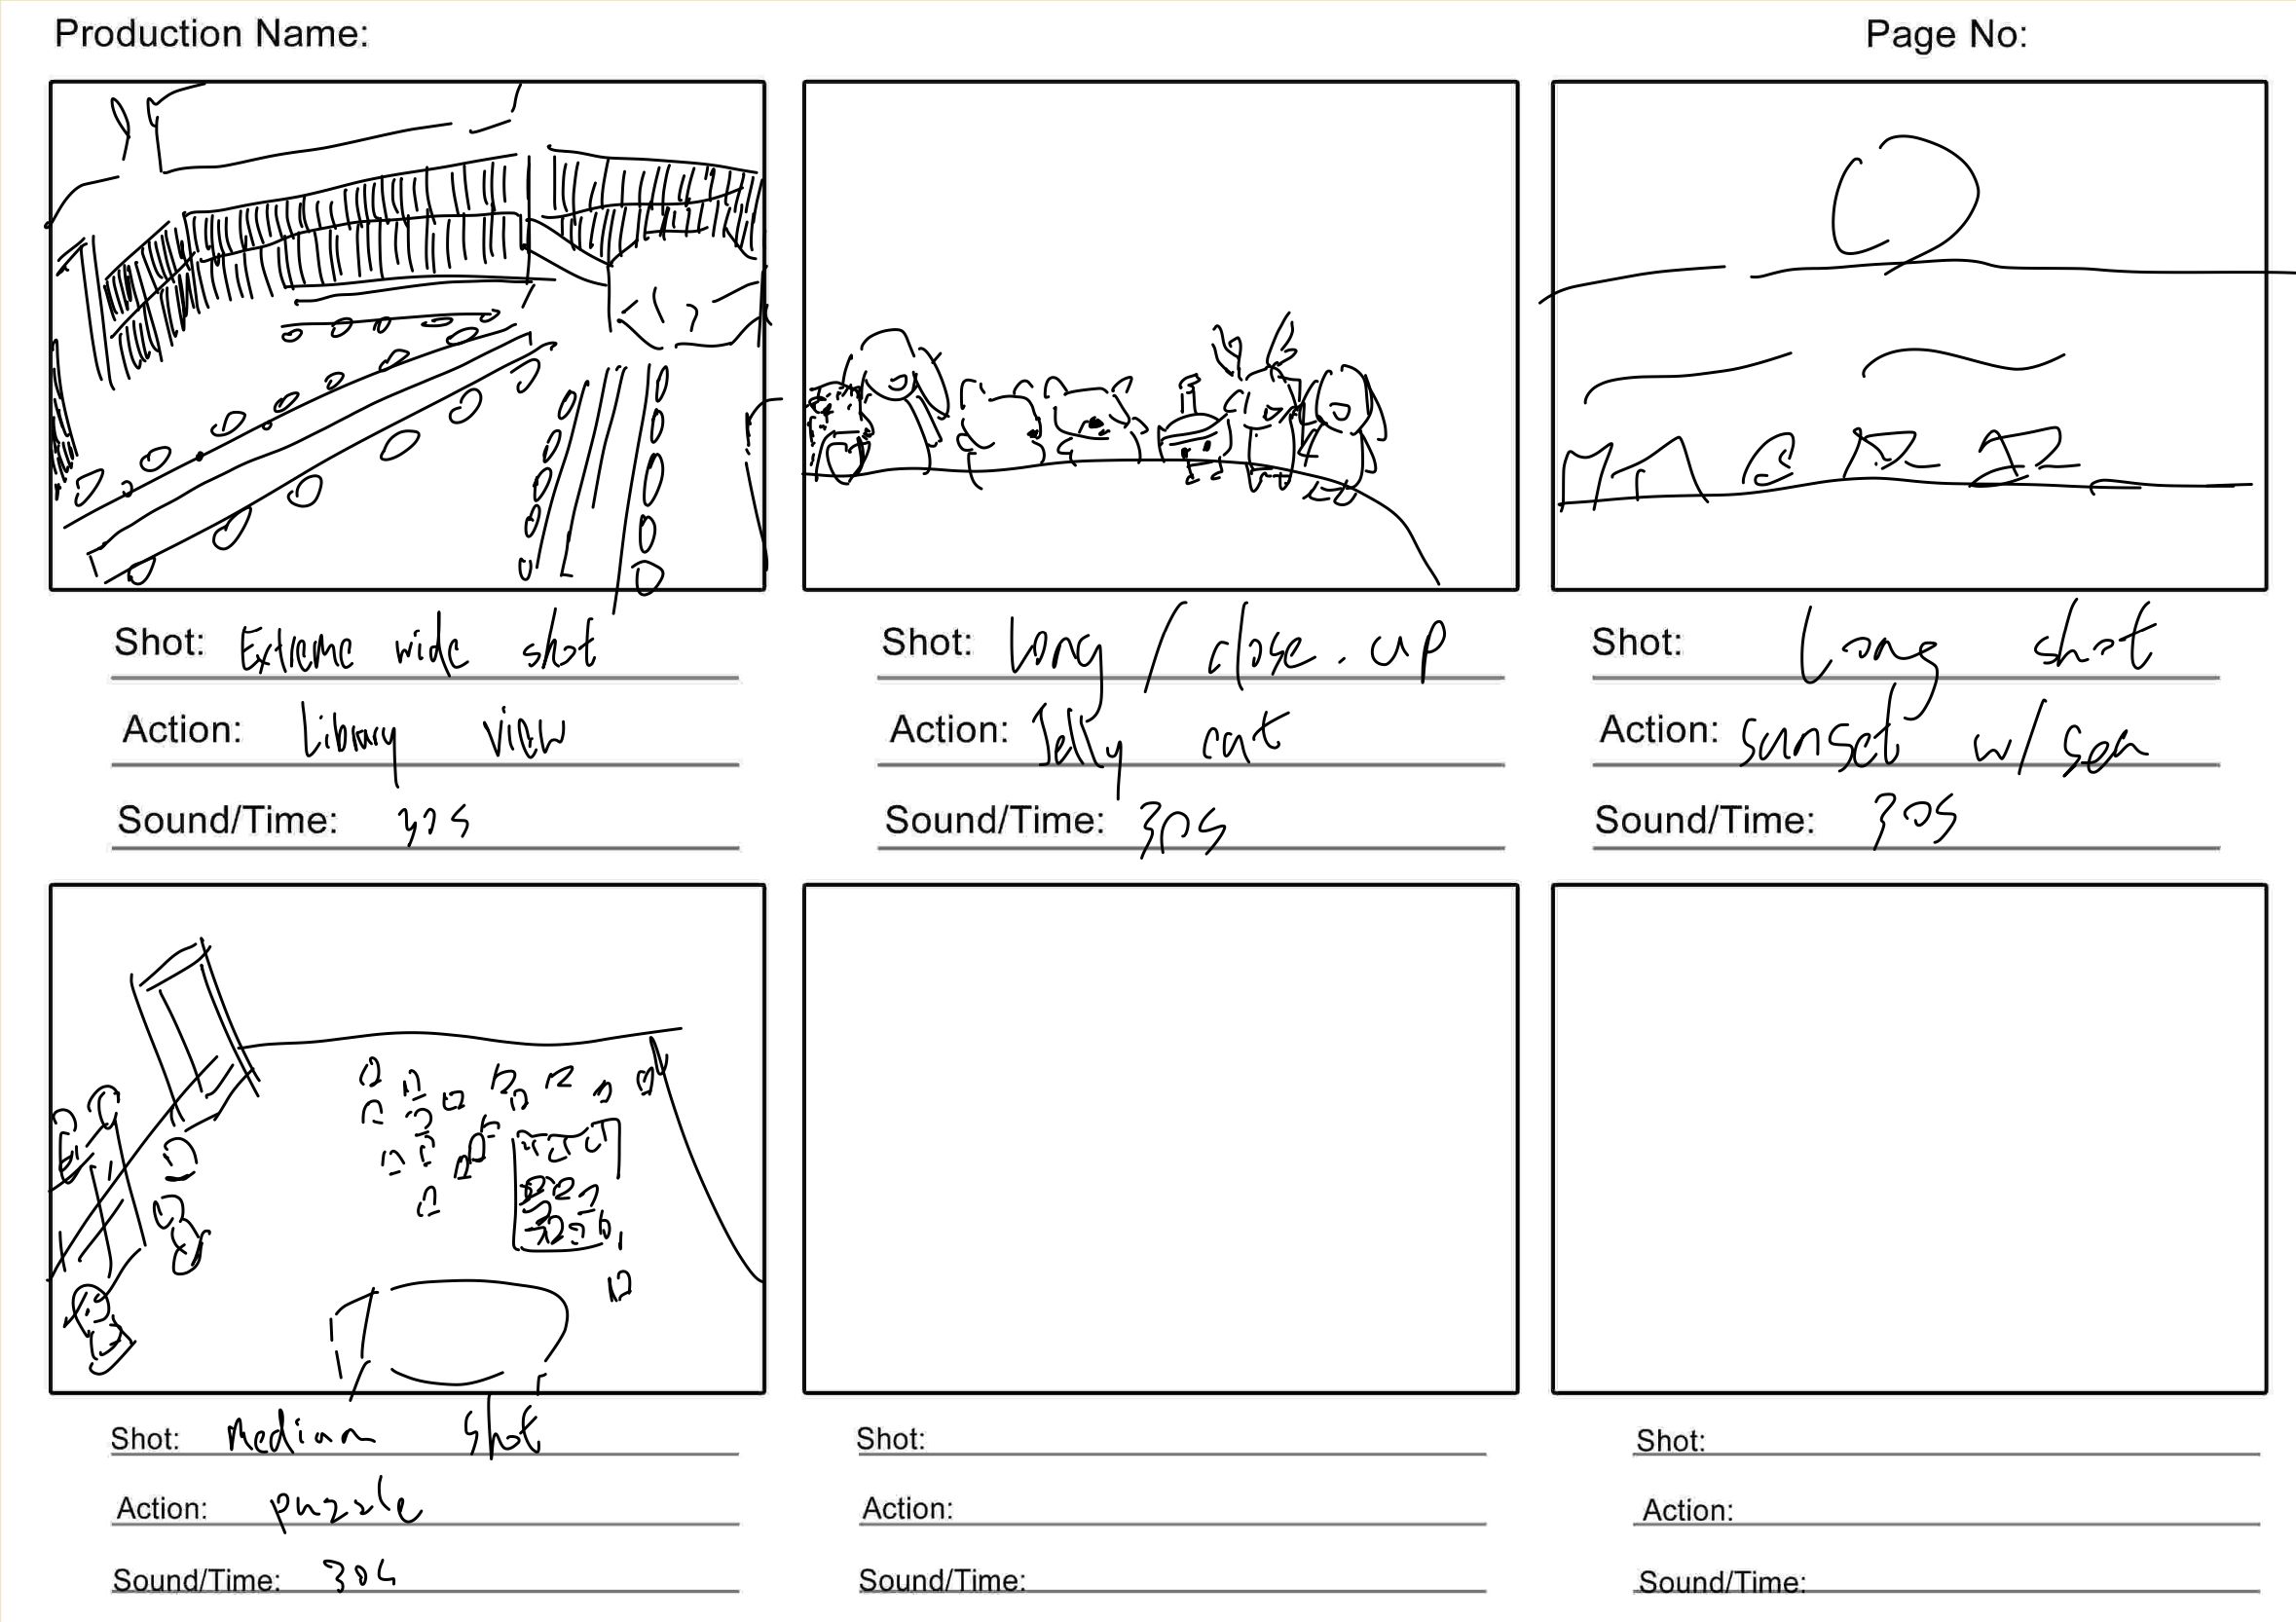 Production Name:
Page No:
Shot: Extreme wide shot
Action: Library view
Sound/Time: 30s
Shot: Long / close.up
Action: Jelly cat
Sound/Time: 30s
Shot: Long shot
Action: sunset w/ sea
Sound/Time: 30s
Shot: Medium shot
Action: puzzle
Sound/Time: 30s
Shot:
Action:
Sound/Time:
Shot:
Action:
Sound/Time: